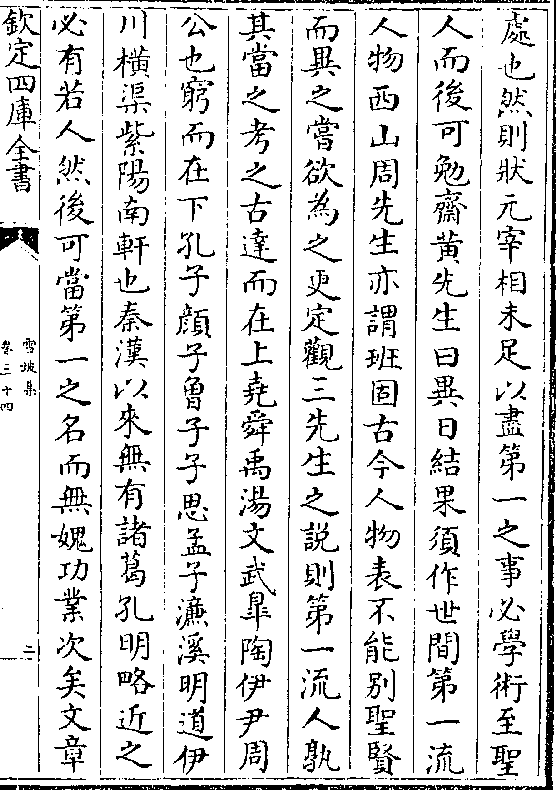 處也然則狀元宰相未足以盡第一之事必學術至聖
人而後可勉齋黃先生曰異日結果須作世間第一流
人物西山周先生亦謂班固古今人物表不能别聖賢
而異之嘗欲為之更定觀三先生之説則第一流人孰
其當之考之古達而在上堯舜禹湯文武臯陶伊尹周
公也窮而在下孔子顔子曾子子思孟子濂溪明道伊
川横渠紫陽南軒也秦漢以來無有諸葛孔明略近之
必有若人然後可當第一之名而無媿功業次矣文章
欽定四庫全書
雪坡集
卷三十四
二